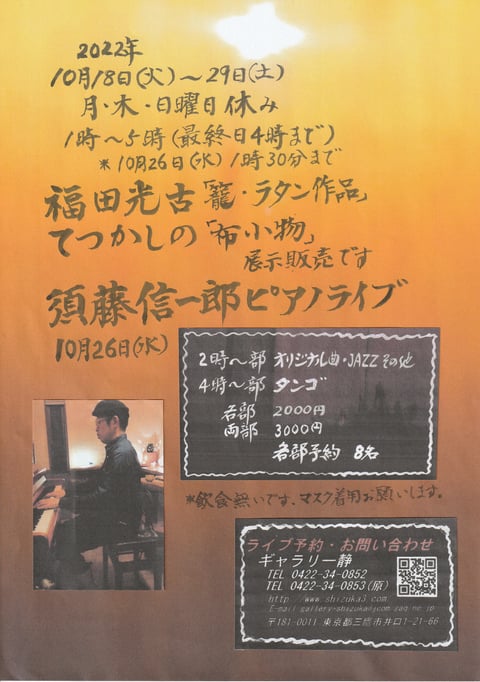 2022年
10月18日(火)～29日(土)
月・木・日曜日休み
1時～5時(最終日4時まで)
*10月26日(水)1時30分まで
福田光古「籠・ラタン作品」
てつかしの「布小物」
展示販売です
須藤信一郎ピアノライブ
10月26日(水)
2時～部 オリジナル曲・JAZZその他
4時～部 タンゴ
各部 2000円
両部 3000円
各部予約 8名
*飲食無いです、マスク着用お願いします。
ライブ予約・お問い合わせ
ギャラリー静
TEL 0422-34-0852
TEL 0422-34-0853(原)
http://www.shizuka3.com
〒181-0011 東京都三鷹市井口1-21-66